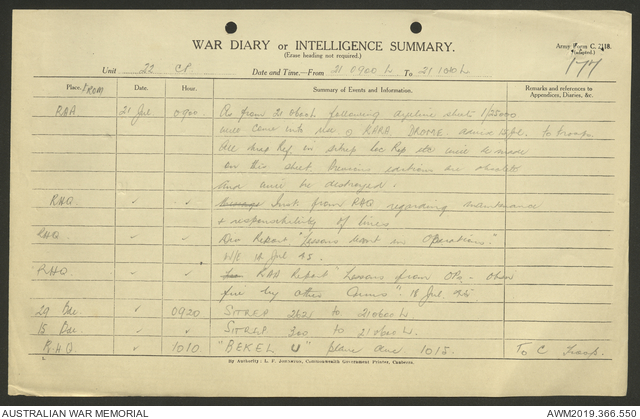 WAR DIARY or INTELLIGENCE SUMMARY.
(Erase heading not required.)
Army Form C. 2118.
(Adapted.)
177
Unit 22 CP Date and Time.—From 21 0900 L To 21 1010 L
Place. / From Date. Hour. Summary of Events and Information. Remarks and references to Appendices, Diaries, &c.
RHA 21 Jul 0900 As from 21 0600L following dyeline sheets 1/25000
will come into use to troops.
All map Ref in sitrep loc Rep etc will be made
on this sheet. Previous editions are obsolete
and will be destroyed.
RHQ ✓ ✓ Inst from RHQ regarding maintenance
& responsibility of lines
RHQ ✓ ✓ Div Report "Lessons learnt on Operations".
W/E 14 Jul 45.
RHQ ✓ ✓ RAA Report "Lessons from OPs.
fire by other Arms". 18 Jul 45
29 Bde. ✓ 0920 SITREP 2621 to 210600 L.
15 Bde. ✓ ✓ SITREP 300 to 210600 L.
RHQ ✓ 1010 "BEKEL U" plane 1015. To C Troop.
By Authority: L. F. Johnston, Commonwealth Government Printer, Canberra.
AUSTRALIAN WAR MEMORIAL
AWM2019.366.550